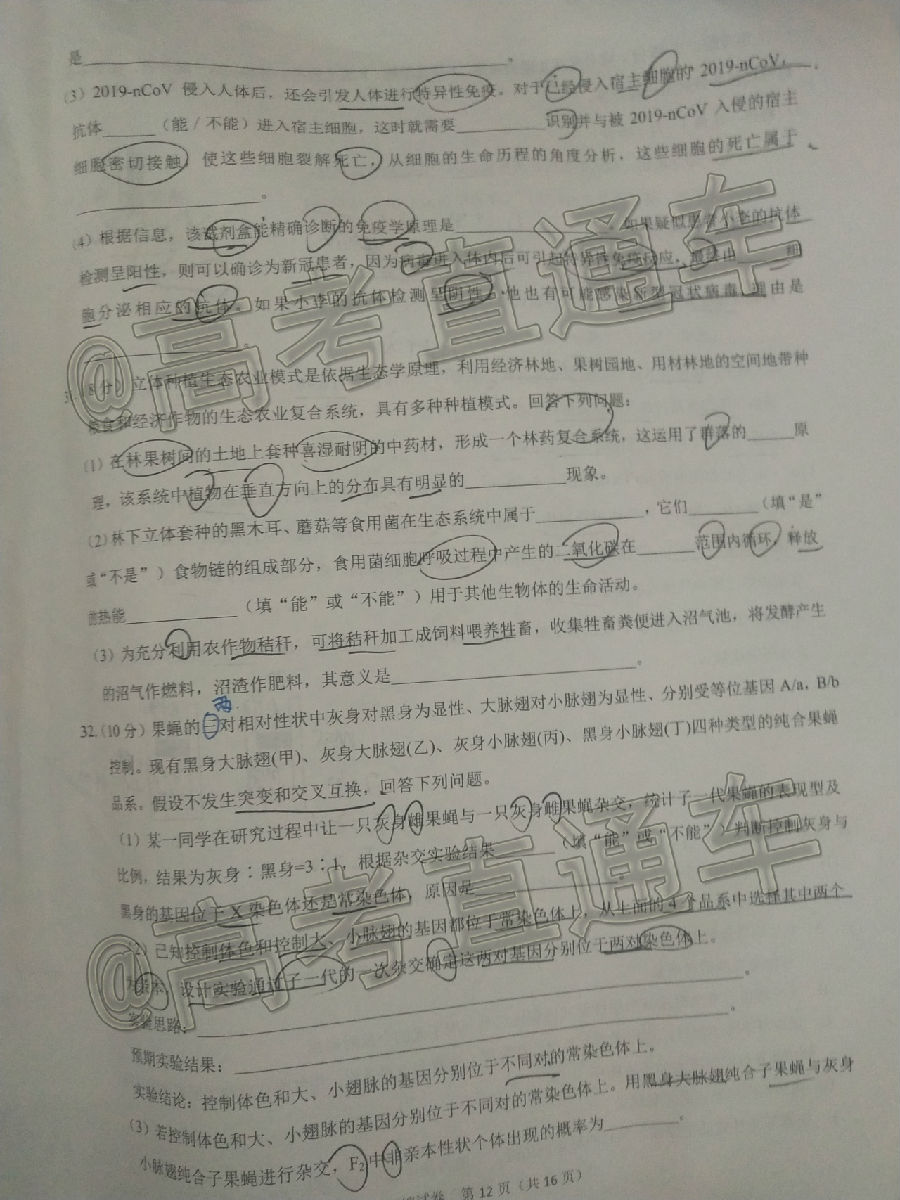 是。
(3) 2019-nCoV 侵入人体后，还会引发人体进行特异性免疫。对于已经侵入宿主细胞的 2019-nCoV，
抗体（能／不能）进入宿主细胞，这时就需要识别并与被 2019-nCoV 入侵的宿主
细胞密切接触，使这些细胞裂解死亡，从细胞的生命历程的角度分析，这些细胞的死亡属于
。
(4) 根据信息，该试剂盒能精确诊断的免疫学原理是如果疑似患者小李的抗体
检测呈阳性，则可以确诊为新冠患者，因为病毒进入体内后可引起特异性免疫反应，细
胞分泌相应的抗体。如果小李的抗体检测呈阴性，他也有可能感染新型冠状病毒，理由是
。
8分）立体种植生态农业模式是依据生态学原理，利用经济林地、果树园地、用材林地的空间地带种
粮食和经济作物的生态农业复合系统，具有多种种植模式。回答下列问题：
(1) 在林果树间的土地上套种喜湿耐阴的中药材，形成一个林药复合系统，这运用了群落的原
理，该系统中植物在垂直方向上的分布具有明显的现象。
(2) 林下立体套种的黑木耳、蘑菇等食用菌在生态系统中属于，它们（填“是”
或“不是”）食物链的组成部分，食用菌细胞呼吸过程中产生的二氧化碳在范围内循环，释放
的热能（填“能”或“不能”）用于其他生物体的生命活动。
(3) 为充分利用农作物秸秆，可将秸秆加工成饲料喂养牲畜，收集牲畜粪便进入沼气池，将发酵产生
的沼气作燃料，沼渣作肥料，其意义是。
两
32.（10 分）果蝇的二对相对性状中灰身对黑身为显性、大脉翅对小脉翅为显性、分别受等位基因 A/a，B/b
控制。现有黑身大脉翅(甲)、灰身大脉翅(乙)、灰身小脉翅(丙)、黑身小脉翅(丁)四种类型的纯合果蝇
品系。假设不发生突变和交叉互换，回答下列问题。
(1) 某一同学在研究过程中让一只灰身雄果蝇与一只灰身雌果蝇杂交，统计了一代果蝇的表现型及
比例，结果为灰身：黑身=3：1。根据杂交实验结果（填“能”或“不能”）判断控制灰身与
黑身的基因位于 X 染色体还是常染色体，原因是。
(2) 已知控制体色和控制大、小脉翅的基因都位于常染色体上，从上面的 4 个品系中选择其中两个
设计实验通过子一代的一次杂交确定这两对基因分别位于两对染色体上。
实验思路：。
预期实验结果：。
实验结论：控制体色和大、小翅脉的基因分别位于不同对的常染色体上。
(3) 若控制体色和大、小翅脉的基因分别位于不同对的常染色体上。用黑身大脉翅纯合子果蝇与灰身
小脉翅纯合子果蝇进行杂交，F₂中非亲本性状个体出现的概率为。
试卷 第 12 页（共 16 页）
@高考直通车
@高考直通车